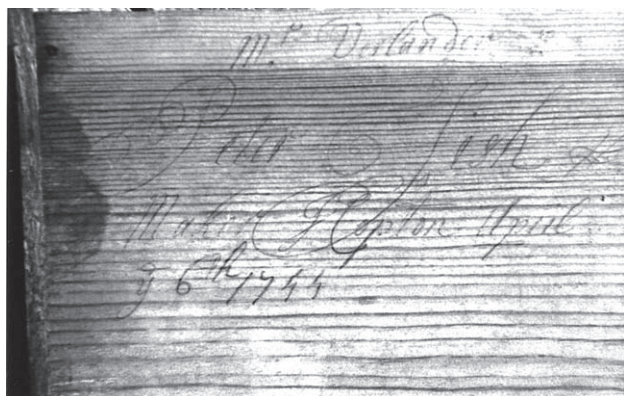 Mr. Verlander
Peter Fish
Maker April
ye 6th 1744